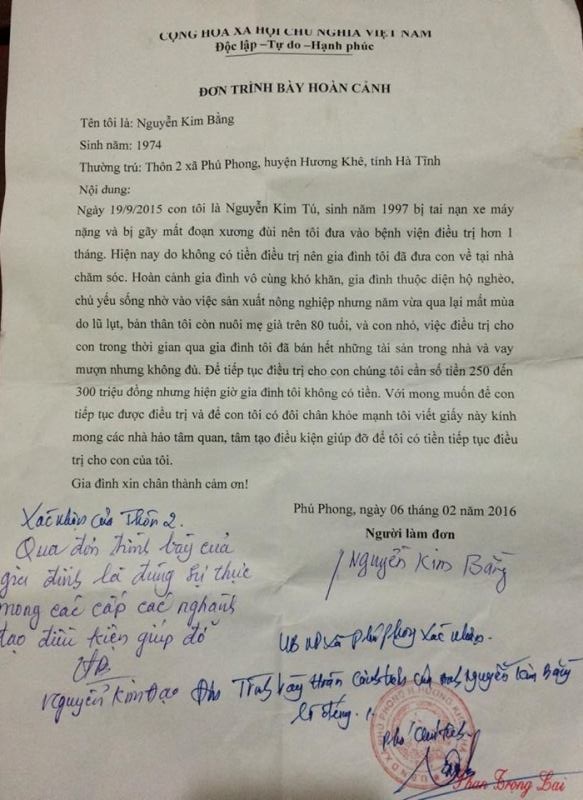 CỘNG HÒA XÃ HỘI CHỦ NGHĨA VIỆT NAM
Độc lập –Tự do –Hạnh phúc
ĐƠN TRÌNH BÀY HOÀN CẢNH
Tên tôi là: Nguyễn Kim Bằng
Sinh năm: 1974
Thường trú: Thôn 2 xã Phú Phong, huyện Hương Khê, tỉnh Hà Tĩnh
Nội dung:
Ngày 19/9/2015 con tôi là Nguyễn Kim Tú, sinh năm 1997 bị tai nạn xe máy
nặng và bị gãy mất đoạn xương đùi nên tôi đưa vào bệnh viện điều trị hơn 1
tháng. Hiện nay do không có tiền điều trị nên gia đình tôi đã đưa con về tại nhà
chăm sóc. Hoàn cảnh gia đình vô cùng khó khăn, gia đình thuộc diện hộ nghèo,
chủ yếu sống nhờ vào việc sản xuất nông nghiệp nhưng năm vừa qua lại mất mùa
do lũ lụt, bản thân tôi còn nuôi mẹ già trên 80 tuổi, và con nhỏ, việc điều trị cho
con trong thời gian qua gia đình tôi đã bán hết những tài sản trong nhà và vay
mượn nhưng không đủ. Để tiếp tục điều trị cho con chúng tôi cần số tiền 250 đến
300 triệu đồng nhưng hiện giờ gia đình tôi không có tiền. Với mong muốn để con
tiếp tục được điều trị và để con tôi có đôi chân khỏe mạnh tôi viết giấy này kính
mong các nhà hảo tâm quan, tâm tạo điều kiện giúp đỡ để tôi có tiền tiếp tục điều
trị cho con của tôi.
Gia đình xin chân thành cảm ơn!
Phú Phong, ngày 06 tháng 02 năm 2016
Người làm đơn
Nguyễn Kim Bằng
Xác nhận của Thôn 2.
Qua đơn trình bày của
gia đình là đúng sự thực
mong các cấp các nghành
tạo điều kiện giúp đỡ
Nguyễn Kim Đạo
UBND xã Phú Phong xác nhận.
Trình bày hoàn cảnh của anh Nguyễn Kim Bằng
là đúng.
Phó Chủ tịch
Phan Trọng Lai